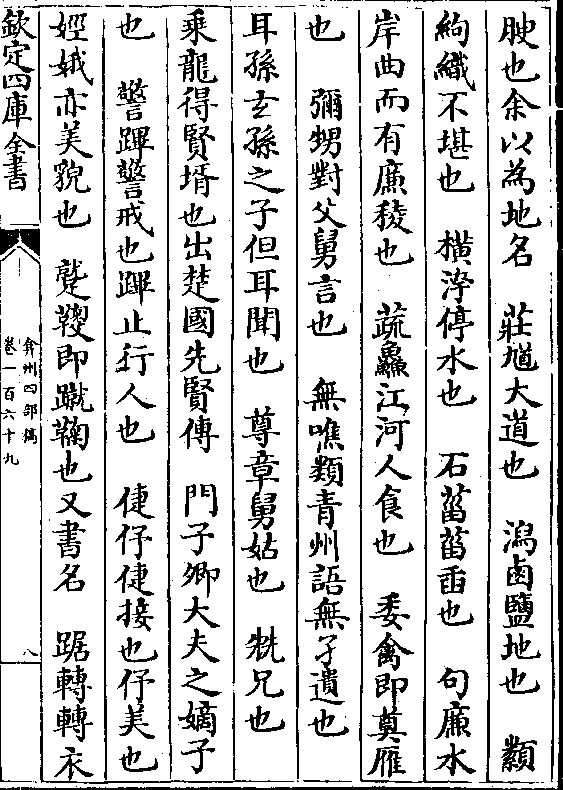 腴也余以為地名　莊馗大道也　潟鹵鹽地也　纇
絇織不堪也　橫渟停水也　石菑菑臿也　句廉水
岸曲而有廉稜也　蔬鱻江河人食也　委禽即奠雁
也　彌甥對父舅言也　無噍類青州語無孑遺也
耳孫玄孫之子但耳聞也　尊章舅姑也　㷀兄也
乘龍得賢壻也出楚國先賢傳　門子卿大夫之嫡子
也　警蹕警戒也蹕止行人也　倢伃倢接也伃美也
娙娥亦美貌也　蹵鞠即蹴鞠也又書名　踞轉轉衣
欽定四庫全書
弇州四部稿
卷一百六十九
八